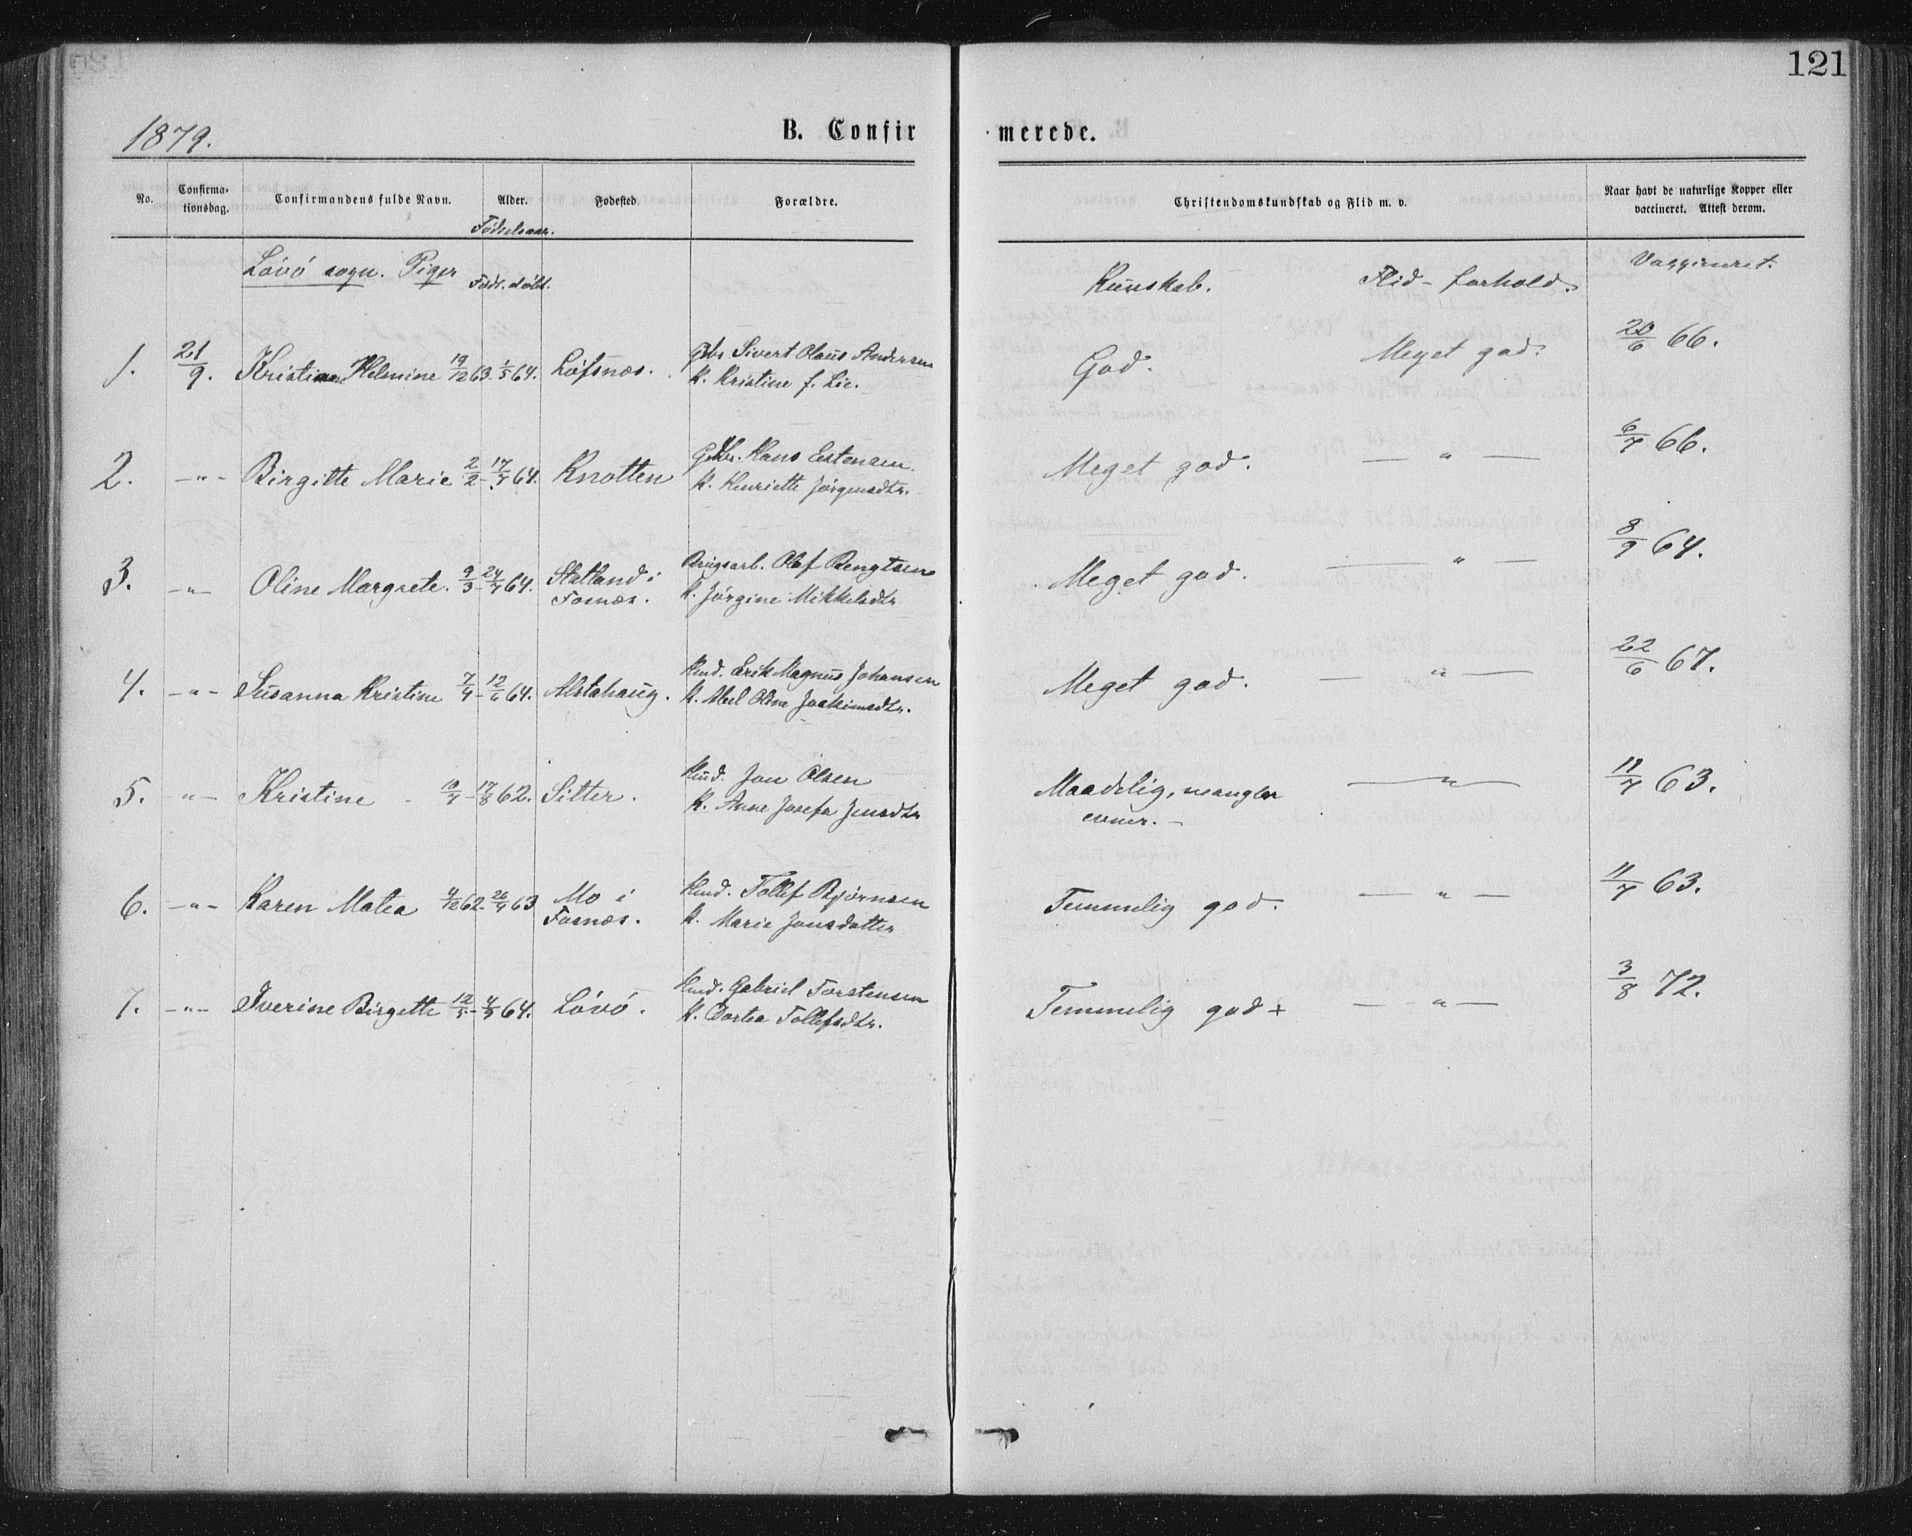 121
1879.
B. Confir merede.
No.
Confirma-
tionsdag.
Confirmandens fulde Navn.
Alder.
Fødselsaar.
Fødested.
Forældre.
Christendomskundskab og Flid m. v.
Naar havt de naturlige Kopper eller
vaccineret. Attest derom.
Lóvó sogn. Piger
Født. døbt.
Kunskab.
Flid - forhold.
Vaggineret.
1. 21/9. Kristina Helmine 19/12 63. 1/5 64. Lófsnæs. Gbr. Sivert Olaus Andersen
K. Kristine f. Lie.
God. Meget god. 20/6 66.
2. -"- Birgitte Marie 2/2 - 17/7 64. Knotten Hans Estensen.
K. Henriette Jørgensdtr.
Meget god. — " — 6/7 66.
3. -"- Oline Margrete. 9/3 - 24/7 64. Statland i
Fosnæs.
Brugsarb. Olaf Bengtsen
K. Jørgine Mikkelsdtr
Meget god. — " — 8/9 64.
4. -"- Susanna Kristine 7/4 - 12/6 64. Alstahaug. Hmd. Erik Magnus Johansen
K. Abel Oline Joakimsdtr.
Meget god. — " — 22/6 67.
5. -"- Kristine 10/7 - 17/8 62. Sitter. Hmd. Jon Olsen
K. Anne Josefa Jensdtr
Maadelig, mangler
evner. -
— " — 11/7 63.
6. -"- Karen Matea 4/12 62. 26/4 63 Mo i
Fosnæs.
Hmd. Tollef Bjørnsen
K. Marie Jonsdatter
Temmelig god. — " — 11/7 63.
7. -"- Iverine Birgette 12/5 - 4/9 64. Lóvó. Hmd. Gabriel Torstensen
K. Dortea Tollefsdtr.
Temmelig god + — " — 3/8 72.